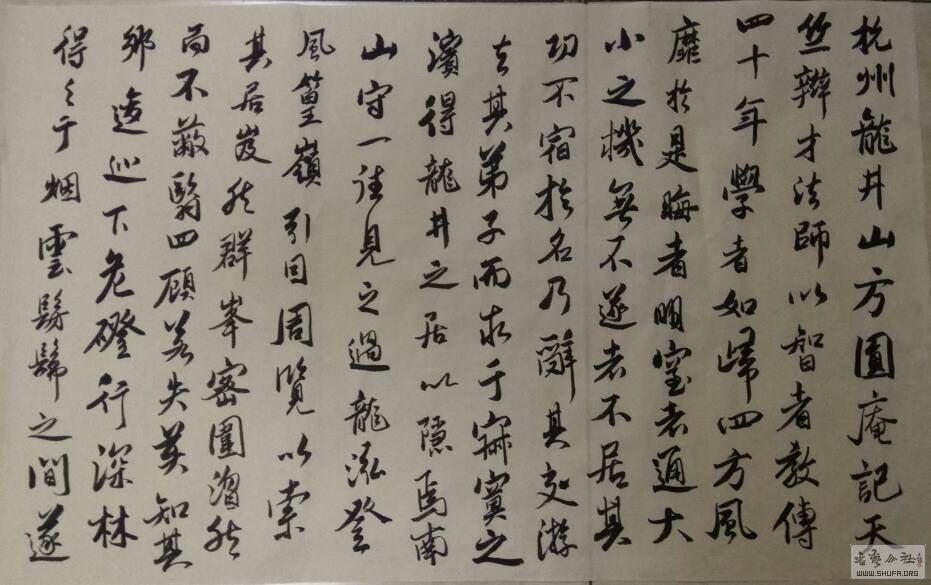 杭州龍井山方圓庵記天
竺辯才法師以智者教傳
四十年學者如歸四方風
靡於是晦者明窒者通大
小之機無不遂者不居其
功不宿於名乃辭其交游
去其弟子而求于寂寞之
濱得龍井之居以隱焉南
山守一往見之過龍泓登
風篁嶺引目周覽以索
其居岌然群峯密圍溜然
而不蔽翳四顧若失莫知其
鄉逡巡下危磴行深林
得之于烟雲髣髴之間遂
書藝公社
WWW.SHUFA.ORG